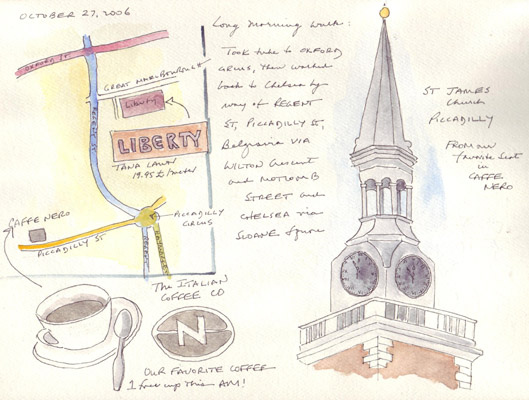 OCTOBER 27, 2006
Long Morning Walk:
Took tube to OXFORD
CIRCUS, then walked
back to Chelsea by
way of REGENT
ST, PICCADILLY ST,
Belgravia VIA
WILTON Crescent
and MOTCOMB
STREET and
CHELSEA via
SLOANE Square
OXFORD ST
GREAT MARLBOROUGH
Liberty
REGENT ST
LIBERTY
TANA LAWN
19.95 £/meter
CAFFE NERO
PICCADILLY ST
PICCADILLY
CIRCUS
The ITALIAN
COFFEE CO
N
OUR FAVORITE COFFEE
1 free cup this AM!
ST JAMES
Church
PICCADILLY
FROM my
favorite seat
in
CAFFE
NERO